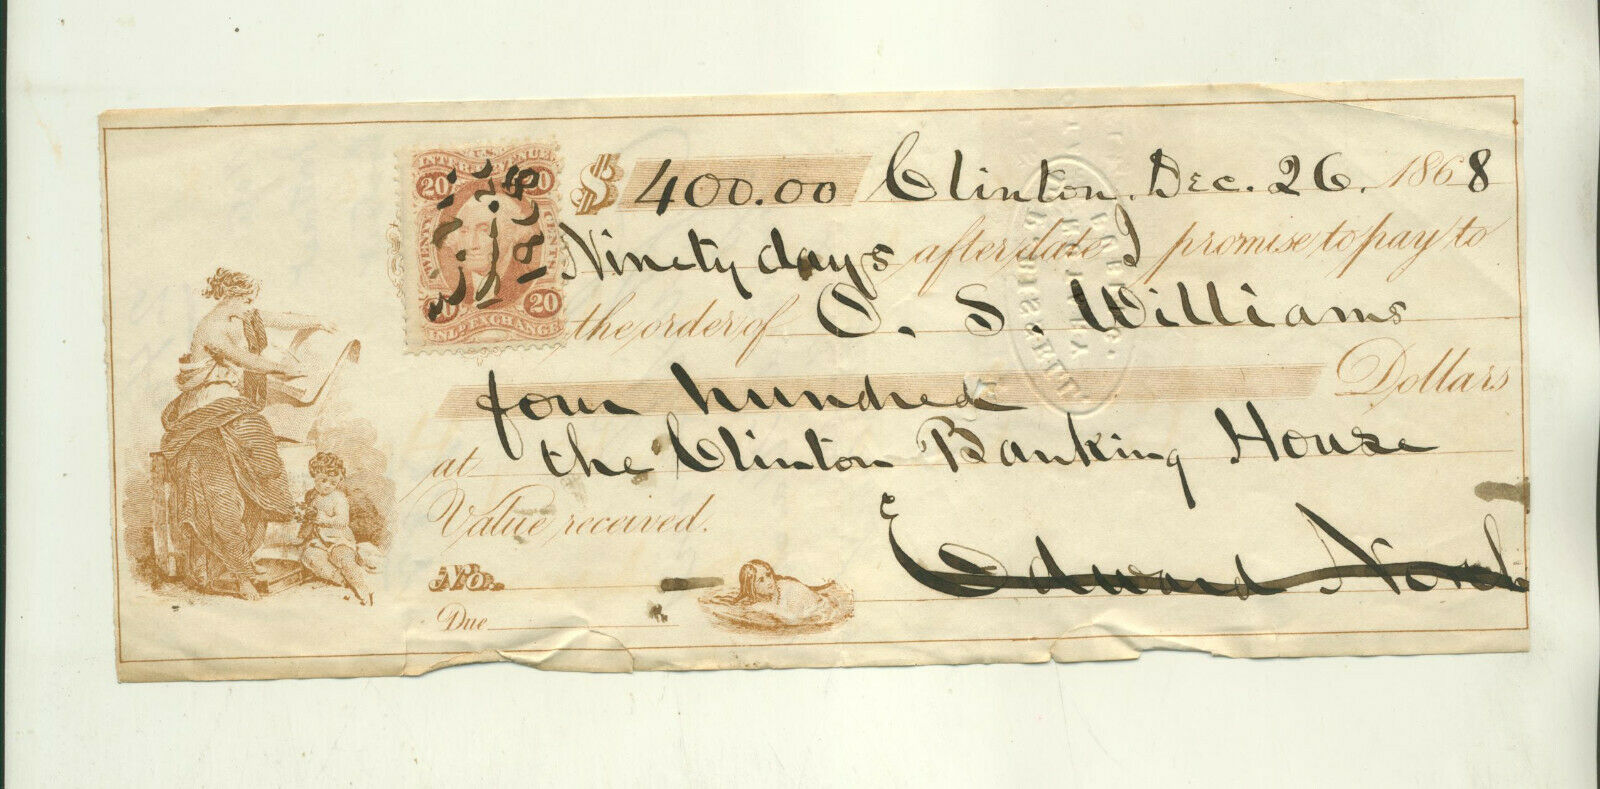 $ 400.00 Clinton, Dec. 26. 1868
Ninety days after date I promise to pay to
the order of C. S. Williams
four hundred Dollars
at the Clinton Banking House
Value received.
Edward
No.
Due
INTER. REVENUE
20
TWENTY CENTS
20 20
IND. EXCHANGE